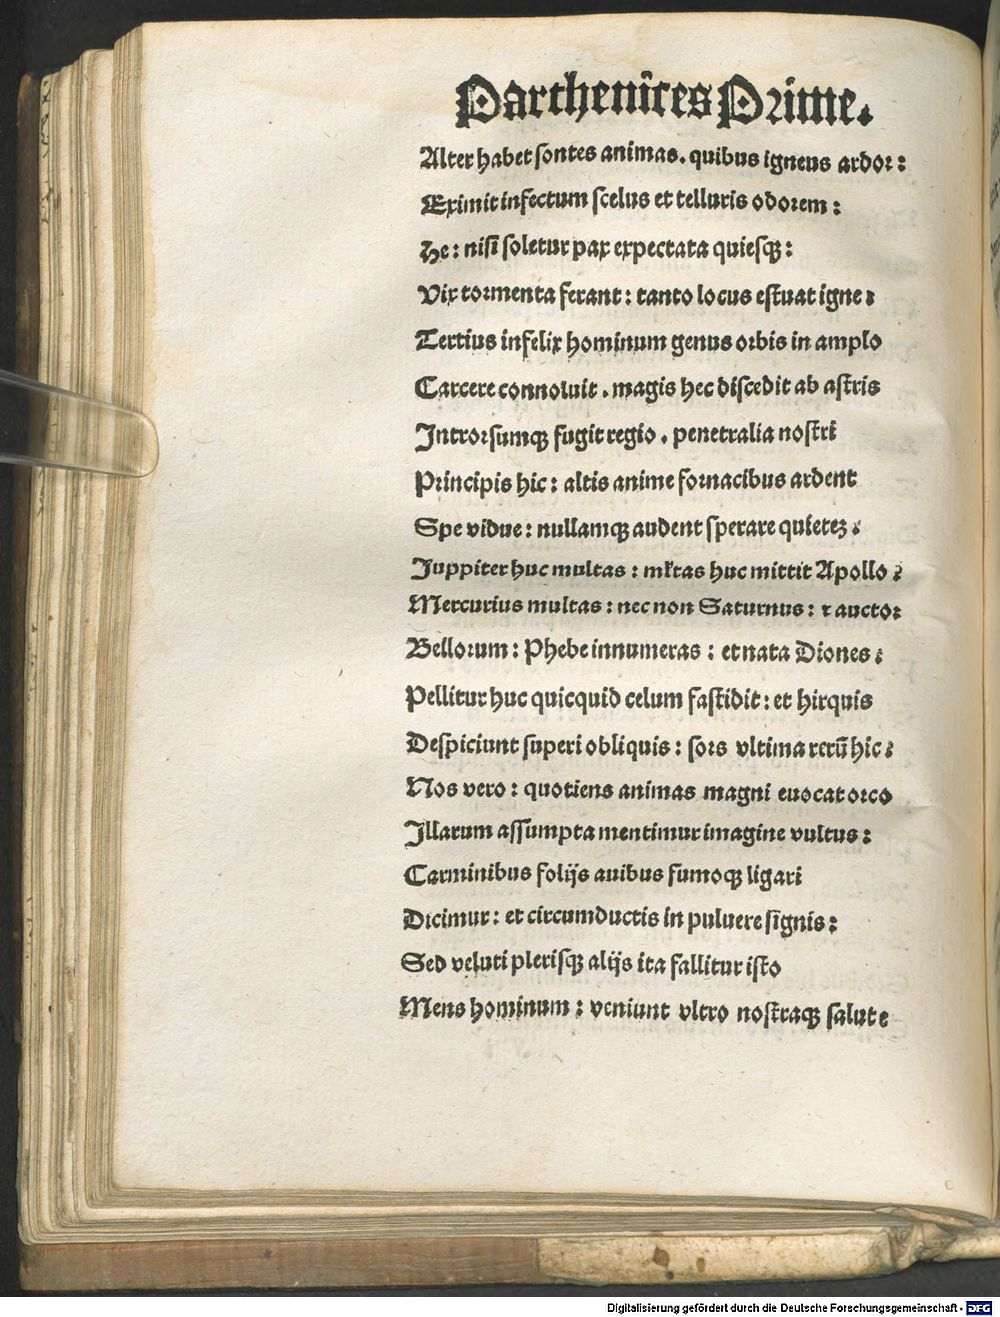 Parthenices Prime.
Alter habet sontes animas. quibus igneus ardor:
Eximit infectum scelus et telluris odorem:
He: nisi soletur pax expectata quiesqꝫ:
Vix tormenta ferant: tanto locus estuat igne:
Tertius infelix hominum genus orbis in amplo
Carcere connoluit. magis hec discedit ab astris
Introrsumqꝫ fugit regio. penetralia nostri
Principis hic: altis anime fornacibus ardent
Spe vidue: nullamqꝫ audent sperare quieteꝫ:
Juppiter huc multas: mltas huc mittit Apollo:
Mercurius multas: nec non Saturnus: ⁊ auctor
Bellorum: Phebe innumeras: et nata Diones:
Pellitur huc quicquid celum fastidit: et hirquis
Despiciunt superi obliquis: sors vltima rerū hic:
Nos vero: quotiens animas magni euocat orco
Illarum assumpta mentimur imagine vultus:
Carminibus folijs auibus fumoqꝫ ligari
Dicimur: et circumductis in puluere signis:
Sed veluti plerisqꝫ alijs ita fallitur isto
Mens hominum: veniunt vltro nostraqꝫ salute
Digitalisierung gefördert durch die Deutsche Forschungsgemeinschaft - DFG